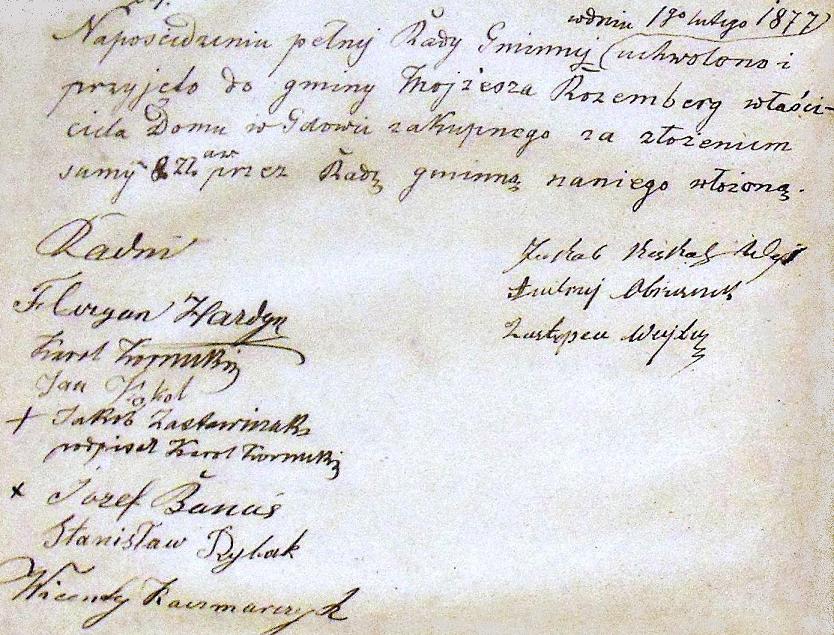 w dniu 1go lutego 1877
Na posiedzeniu pełnej Rady Gminnej uchwolono i
przyjęto do gminy Mojżesza Rozemberg właści-
ciela Domu w Gdowie zakupnego za złożeniem
sumy 22 aw przez Radę gminną naniego włożoną.
Radni
Floryan Hardyn
Karol
Jan Kokol
+ Jakób Zastawniak
podpisał Karol
x Józef Banaś
Stanisław Rybak
Wicenty Kaczmarczyk
Jakób
Andrzej
Zastępca Wójta